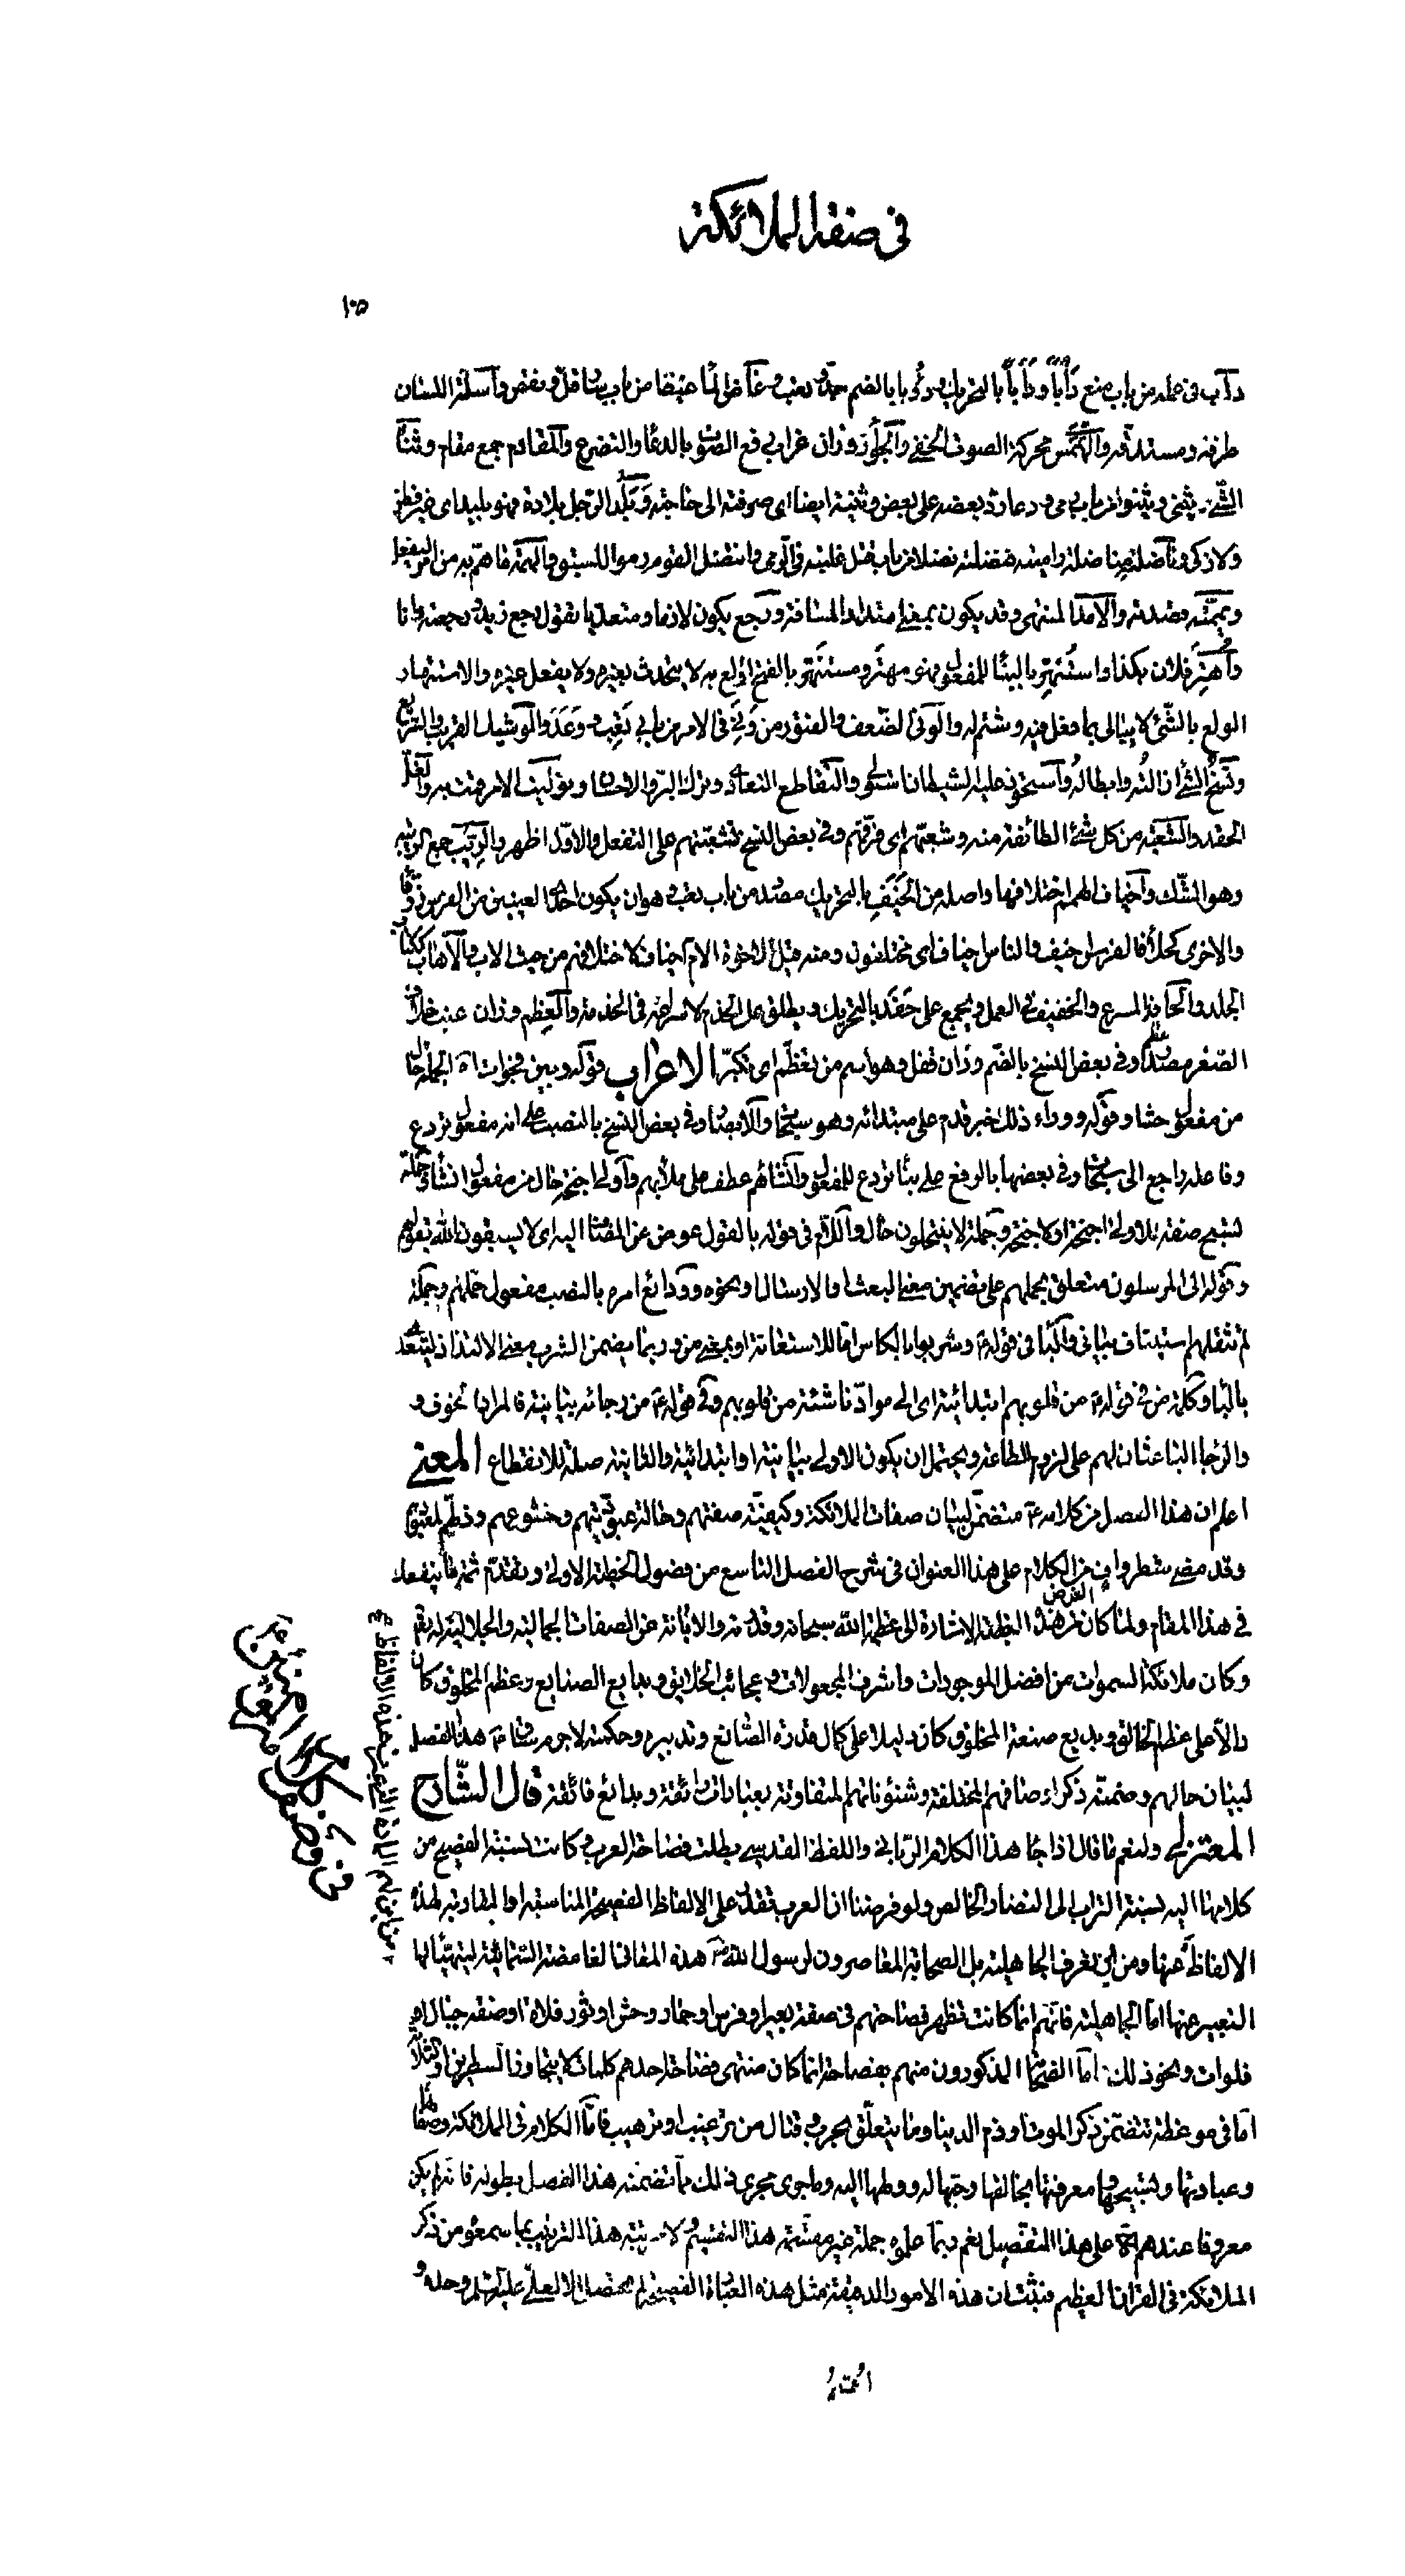 في صفة الملائكة
١٠٥
دأب في عمله من باب منع دأبا ودأبا بالتحريك ودؤبا بالضم جد وتعب وغاض الماء غيضا من باب سار قل ونقص وأسلة اللسان
طرفه ومستدقه والهمس محركة الصوت الخفي والجؤار وزان غراب رفع الصوت بالدعاء والتضرع والمقاوم جمع مقام وثناء
الشيء يثني ويثنو من باب رمى ودعا رد بعضه على بعض وثنيته ايضا اى صرفته الى حاجته وبلد الرجل بلادة فهو بليد اى غير فطن
ولا ذكي وناضلته مناضلة راميته فنضلته نضلا من باب قتل غلبته في الرمي وانتضل القوم رموا للسبق والهمة ما هم به من امر ليفعل
ويممته قصدته والامد المنتهى وقد يكون بمعنى امتداد المسافة ورجع يكون لازما ومتعديا يقول رجع زيد ورجعته انا
واهتر فلان بكذا واستهتر بالبناء للمفعول فهو مهتر ومستهتر بالفتح اولع به لا يتحدث بغيره ولا يفعل غيره والاستهتار
الولع بالشيء لا يبالى بما فعل فيه وشتم له والونى الضعف والفتور من ونى في الامر من باب تعب ووعد والوشيك القريب والسريع
ونسخ الشيء ازالته وابطاله واستحوذ عليه الشيطان استولى والتقاطع التعادي وترك البر والاحسان وتوليت الامر قمت به والغل
الحقد والشعبة من كل شيء الطائفة منه وشعبتهم اى فرقتهم وفي بعض النسخ تشعبتهم على التفعل والاول اظهر والريب جمع الريبة
وهو الشك وأخياف الهمم اختلافها واصله من الخيف بالتحريك مصدر من باب تعب وهو ان يكون احدى العينين من الفرس زرقاء
والاخرى كحلاء فالفرس اخيف والناس اخياف اى مختلفون ومنه قيل لاخوة الام اخياف لاختلافهم من حيث الاب والاهاب ككتاب
الجلد والحافد المسرع والخفيف في العمل ويجمع على حفد بالتحريك ويطلق على الخدم لاسراعهم في الخدمة والعظم وزان عنب خلاف
الصغر مصدر عظم وفي بعض النسخ بالضم وزان قفل وهو اسم من تعظم اى تكبر الاعراب قوله وبين فجوات اه الجملة حال
من مفعول حشا وقوله ووراء ذلك خبر قدم على مبتدائه وهو سبحات والابصار وفي بعض النسخ بالنصب على انه مفعول تردع
وفاعله راجع الى سبحات وفي بعضها بالرفع على بناء تردع للمفعول وانشأهم عطف على ملأ بهم وأولي اجنحة حال من مفعول انشاء وجملة
تسبح صفة لاولي اجنحة او لاجنحة وجملة لا ينتحلون حال واللام في قوله بالقول عوض عن المضاف اليه اى لا يسبقون الله بقولهم
وقوله الى المرسلين متعلق بحملهم على تضمين معنى البعث او الارسال او نحوه وودائع امره بالنصب مفعول حملهم وجملة
لم تثقلهم استيناف بياني والباء في قوله وشربوا بالكاس اما للاستعانة او بمعنى من وربما يضمن الشرب معنى الالتذاذ ليتعدى
بالباء وكلمة من في قوله من قلوبهم ابتدائية اى الى مواد ناشئة من قلوبهم وفي قوله من رجائه بيانية فالمراد الخوف و
والرجاء الباعثان لهم على لزوم الطاعة ويحتمل ان يكون الاولى بيانية او ابتدائية والثانية صلة للانقطاع المعنى
اعلم ان هذا الفصل من كلامه متضمن لبيان صفات الملائكة وكيفية صفتهم وحالة عبوديتهم وخشوعهم وذلهم لمعبودهم
وقد مضى شطر واف من الكلام على هذا العنوان في شرح الفصل التاسع من فصول الخطبة الاولى وتقدم ثمة ما ينفعك
في هذا المقام ولما كان الغرض من هذه الخطبة الاشارة الى عظمة الله سبحانه وقدرته والابانة عن الصفات الجمالية والجلالية له تعالى
وكان ملائكة السموات من افضل الموجودات واشرف المجعولات وعجائب الخلايق وبدايع الصنايع وعظم المخلوق كان
دالا على عظم الخالق وبديع صنعة المخلوق كان دليلا على كمال قدرة الصانع وتدبيره وحكمته لاجرم ساق هذا الفصل
لبيان حالهم وضمنه ذكر اوصافهم المختلفة وشئوناتهم المتفاوتة بعبارات رائقة وبدائع فائقة قال الشارح
المعتزلي ولنعم ما قال اذا جاء هذا الكلام الرباني واللفظ القدسي بطلت فصاحة العرب وكانت نسبة الفصيح من
كلامها اليه نسبة التراب الى النضار الخالص ولو فرضنا ان العرب تقدر على الالفاظ الفصيحة المناسبة او المقاربة لهذه
الالفاظ من اين لهم المادة التي عبرت هذه الالفاظ عنها ومن اين تعرف الجاهلية بل الصحابة المعاصرون لرسول الله هذه المعاني الغامضة السمائية ليتهيأ لها
التعبير عنها اما الجاهلية فانهم انما كانت تظهر فصاحتهم في صفة بعير او فرس او حمار وحش او ثور فلاة او صفة جبال او
فلوات ونحو ذلك اما الصحابة المذكورون منهم بفصاحة انما كان منتهى فصاحة احدهم كلمات لا يتجاوز السطرين او الثلاثة
اما في موعظة تتضمن ذكر الموت او ذم الدنيا وما يتعلق بحرب وقتال من ترغيب او ترهيب فاما الكلام في الملائكة وصفاتها
وعبادتها وتسبيحها ومعرفتها بخالقها وحبها له وولهها اليه وما جرى مجرى ذلك مما تضمنه هذا الفصل بطوله فانه لم يكن
معروفا عندهم على هذا التفصيل نعم ربما علموه جملة غير مقسمة هذا التقسيم ولا مرتبة هذا الترتيب بما سمعوه من ذكر
الملائكة في القران العظيم فثبت ان هذه الامور الدقيقة مثل هذه العبارة الفصيحة لم تحصل الا لعلي وحده
في وصف كلام امير المؤمنين